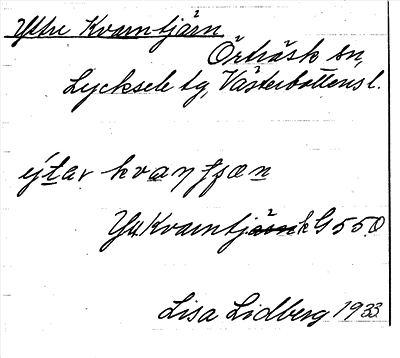 Yttre Kvarntjärn
Örträsk sn,
Lycksele tg, Västerbottens l.
Yt. Kvarntjärn k G 550
Lisa Lidberg 1933